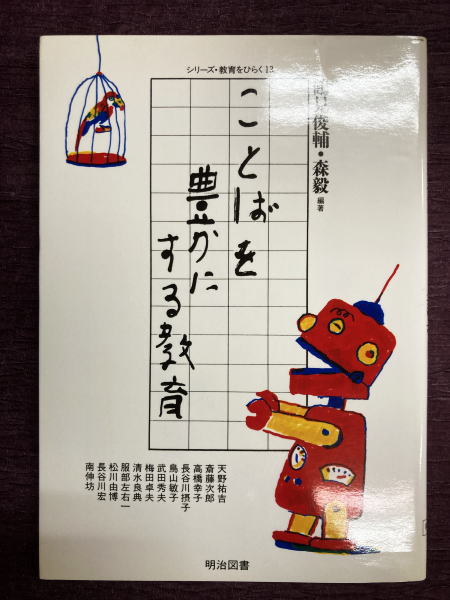 シリーズ・教育をひらく13
俊輔・森毅 編著
ことばを
豊かに
する教育
天野祐吉
斎藤次郎
高橋幸子
長谷川摂子
鳥山敏子
武田秀夫
梅田卓夫
清水良典
服部左右一
松川由博
長谷川宏
南伸坊
明治図書